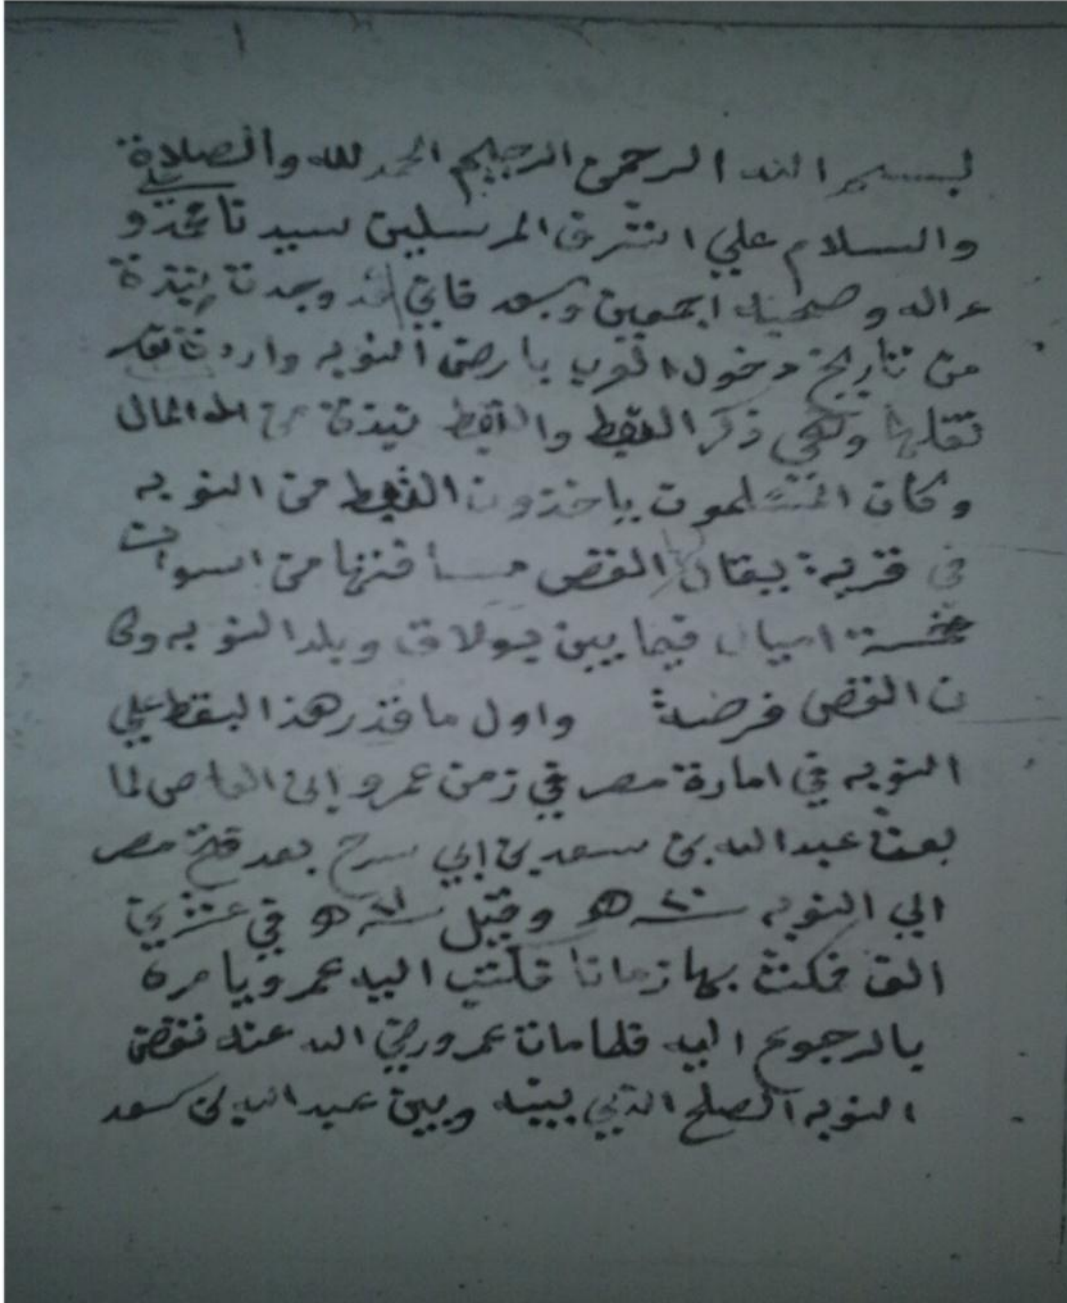 بسم الله الرحمن الرحيم الحمد لله والصلاة
والسلام علي اشرف المرسلين سيدنا محمد و
علي اله وصحبه اجمعين وبعد فاني قد وجدت نبذة
من تاريخ دخول العرب بارض النوبه واردة فقد
نقلها وهي ذكر البقط والبقط نبذة من المال
وكان المسلمون ياخذون البقط من النوبه
في قرية يقال لها القصر مسافتها من اسوان
خمسة اميال فيما بين بولاق وبلد النوبه وكا
ن القصر فرضة واول ما قدر هذا البقط علي
النوبه في امارة مصر في زمن عمرو ابن العاص لما
بعث عبد الله بن سعد بن ابي سرح بعد فتح مصر
الي النوبه سنة ٢٠ ه وقيل سنة ٢١ ه في عشرين
الف فمكث بها زمانا فكتب اليه عمرو يامره
بالرجوع اليه فلما مات عمرو رضي الله عنه نقض
النوبه الصلح الذي بينه وبين عبد الله بن سعد